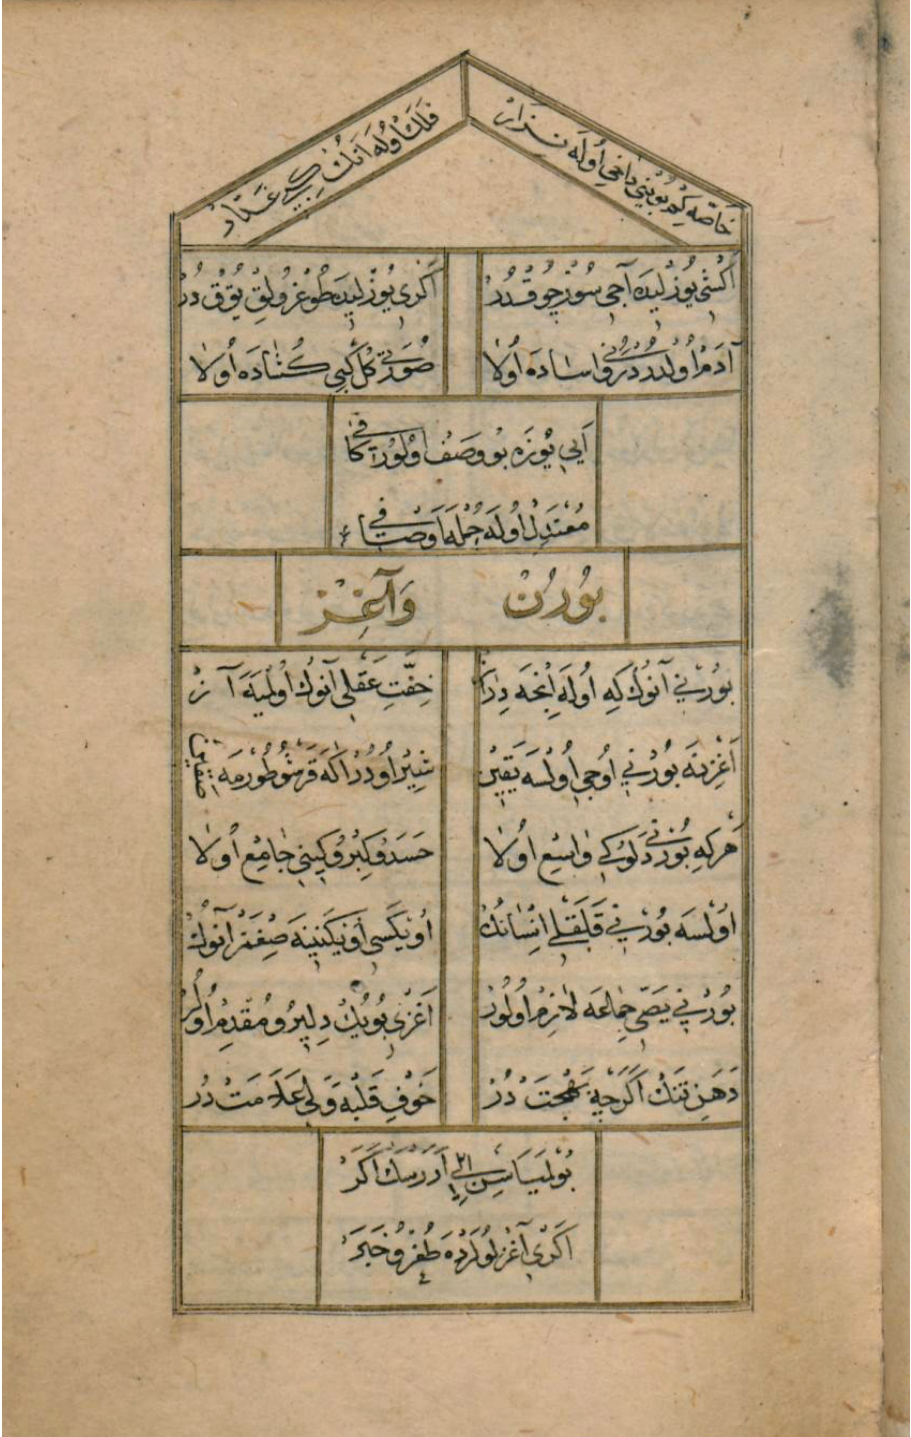 خَاصّه كِم بُوينى دَاخى اُولَه نِزَارْ
فَلَكْ اُولَه اَنُكْ كِبِى غَدَّارْ
اَكْشِى يُوزْلِيدَه آجِى سُوزْ چُوقْدُرْ
اَكْرِى يُوزْلِيدَه طُوغْرُولِقْ يُوقْ دُرْ
آدَمْ اُولْدُرْ دُرُونِى اسَادَه اُولَا
صُورَتِى كُلْ كِبِى كُشَادَه اُولَا
اَيِى يُوزَه بُو وَصَفْ اُولُورْ كَافِى
مُعْتَدِلْ اُولَه جُمْلَه اَوْصَافِى
بُورُنْ وَآغِزْ
بُورْنِى آنُوكْ كِه اُولَه اِنْجَه دِرَازْ
خِفَّتِ عَقْلِى آنُوكْ اُولْمَيَه آزْ
آغْزِنَه بُورْنِى اُوجِى اُولْسَه يَقِينْ
شِيرْ اُودُرْ اكَه قَرْشُو طُورْمَه صَقِينْ
هَرْكِه بُورْنِى دَلُوكِى وَاسِعْ اُولَا
حَسَدْ و كِبْرْ و كِينِى جَامِعْ اُولَا
اُولْسَه بُورْنِى قَلِقْلِى اِنْسَانُكْ
اُونِكَسِى اُونِيكَنِينَه صِغْمَزْ آنُوكْ
بُورْنِى يَصِّى جِمَاعَه لَازِمْ اُولُورْ
آغْزِى بُويُكْ دِلِيرْ و مُقْدِمْ اُولُرْ
دَهَنِ تَنْكْ اَكَرْچِه بَهْجَتْ دُرْ
خَوْفِ قَلْبَه وَلِى عَلَامَتْ دُرْ
بُولْمَيَاسِنْ اَرَرْسَكْ اَكَرْ
اَكْرِى آغِزْلُولَرْدَه طُغْرُو خَبَرْ